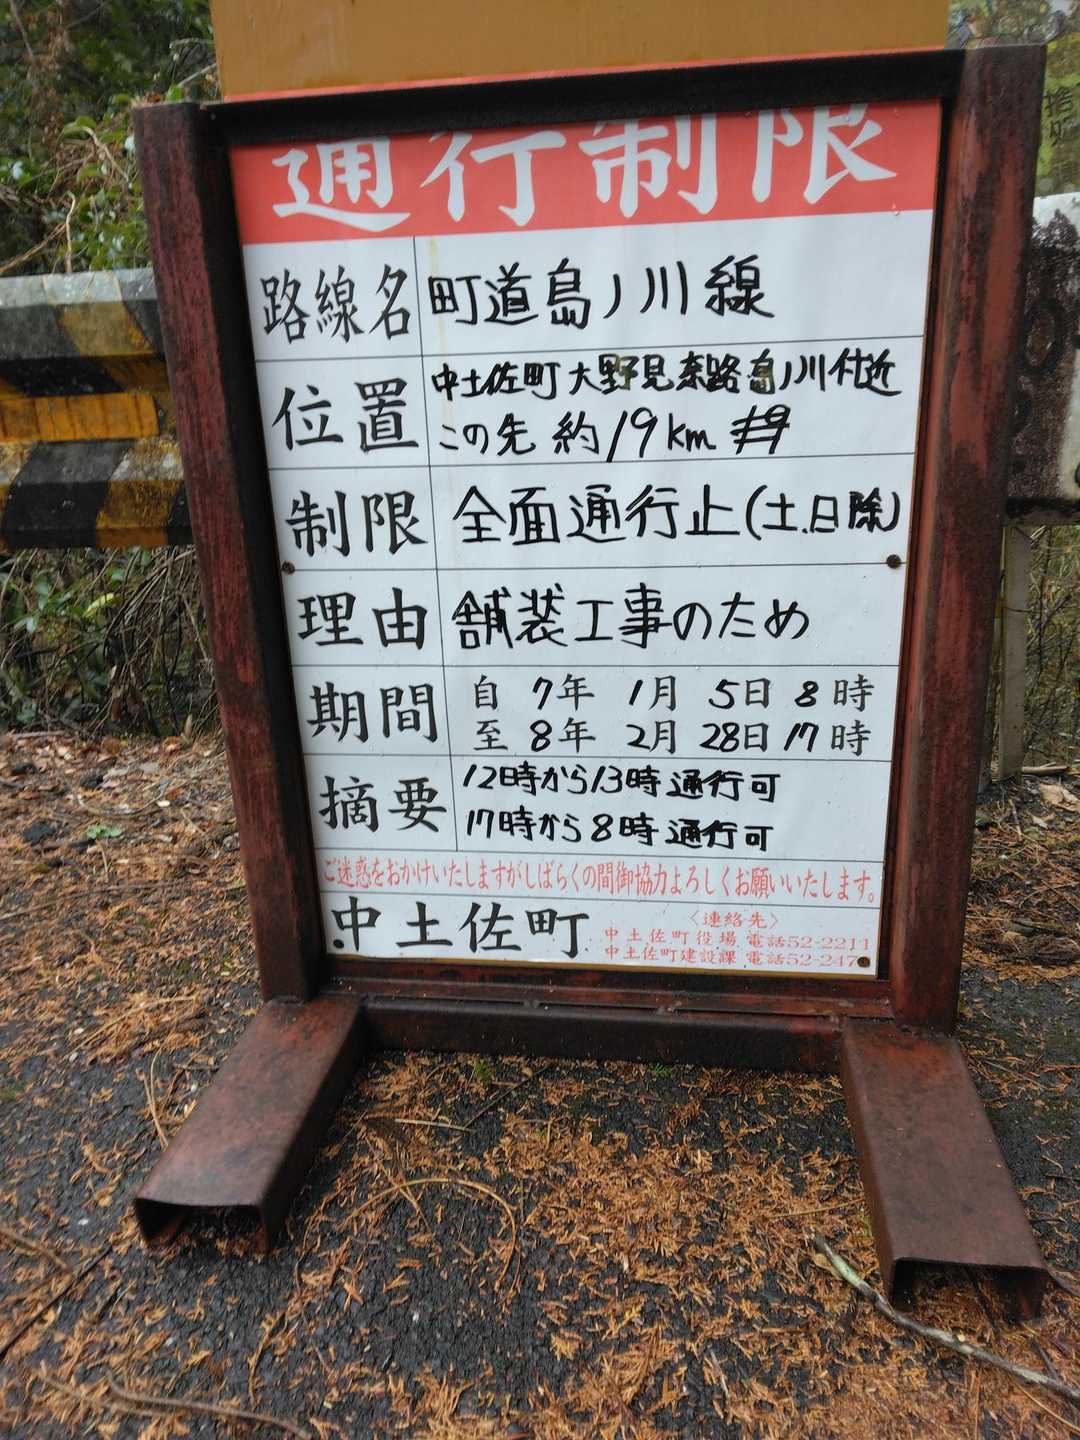 通行制限
路線名 町道島ノ川線
位置 中土佐町大野見奈路島ノ川付近
この先 約19km
制限 全面通行止(土.日除)
理由 舗装工事のため
期間 自 7年 1月 5日 8時
至 8年 2月 28日 17時
摘要 12時から13時通行可
17時から8時通行可
ご迷惑をおかけいたしますがしばらくの間御協力よろしくお願いいたします。
中土佐町 〈連絡先〉
中土佐町役場 電話52-2211
中土佐町建設課 電話52-247